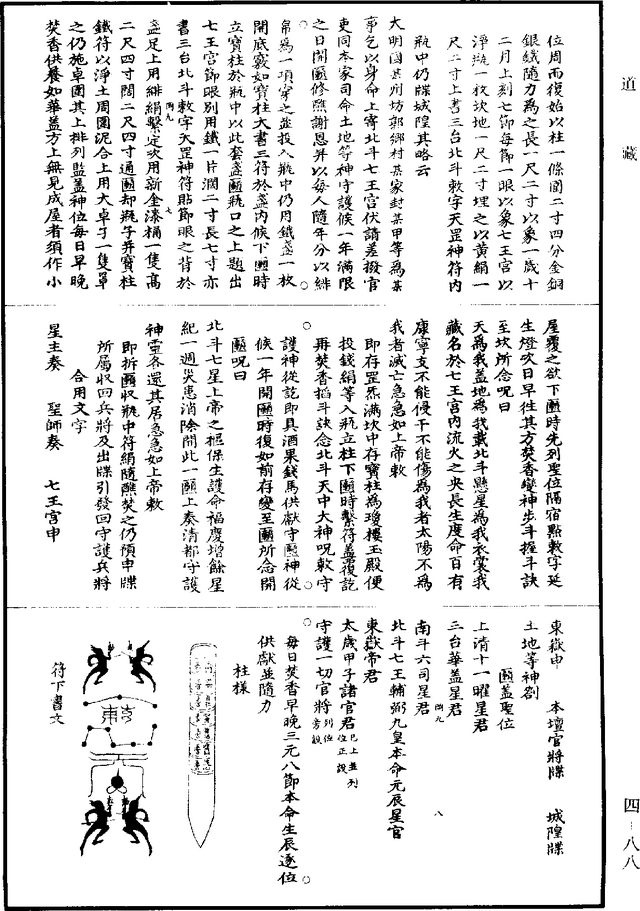 道藏
位周而復始以柱一條圍二寸四分金銅
銀鐵隨力為之長一尺二寸以象一歲十
二月上刻七節每節一眼以象七王宮以
淨磁一枚坎地一尺二寸埋之以黃絹一
尺二寸上書三台北斗敕字天罡神符內
瓶中仍牒城隍其略云
大明國某州坊郭鄉村某家封某甲等為某
事乞以身命上寄北斗七王宮伏請差撥官
吏同本家司命土地等神守護候一年滿限
之日開匭修醮謝恩昇以每人隨年分以緋
帛為一項穿之並投入瓶中仍用鐵盞一枚
開底竅如寶柱大書三符於盞內候下匭時
立寶柱於瓶中以此套盞匭瓶口之上題出
七王宮節眼別用鐵一片濶二寸長七寸亦
書三台北斗敕字天罡神符貼節眼之背於
盞足上用緋絹繫定次用新金漆桶一隻高
二尺四寸闊二尺四寸通匭却瓶子并寶柱
鐵符以淨土周圍泥合上用大卓子一隻罩
之仍施卓圍其上排列監蓋神位每日早晚
焚香供養如華蓋方上無見成屋者須作小
屋覆之欲下匭時先列聖位隔宿點敕字延
生燈次日早徃其方焚香變神步斗握斗訣
至坎所念呪曰
天為我蓋地為我載北斗懸星為我衣裳我
藏名於七王宮內流火之央長生度命百有
康寧支不能侵干不能傷為我者太陽不為
我者滅亡急急如上帝敕
即存罡炁滿坎中存寶柱為瓊樓玉殿便
投錢絹等入瓶立柱下匭時繫符蓋覆訖
再焚香掐斗訣念北斗天中大神呪敕守
護神從訖即具酒果錢馬供獻守匭神從
候一年開匭時復如前存變至匭所念開
匭呪曰
北斗七星上帝之樞保生護命福慶增餘星
紀一週災患消除開此一匭上奏清都守護
神靈各還其居急急如上帝敕
即拆匭收瓶中符絹隨醮焚之仍預申牒
所屬收回兵將及出牒引發回守護兵將
合用文字
星主奏 聖師奏 七王宮申
東嶽申 本壇官將牒 城隍牒
土地等神劄
匭蓋聖位
上清十一曜星君
三台華蓋星君
南斗六司星君
北斗七王輔弼九皇本命元辰星官
東嶽帝君
太歲甲子諸官君已上並列位正設
守護一切官將列位旁設
每日焚香早晚三元八節本命生辰逐位
供獻並隨力
柱樣
符下書文
四-八八